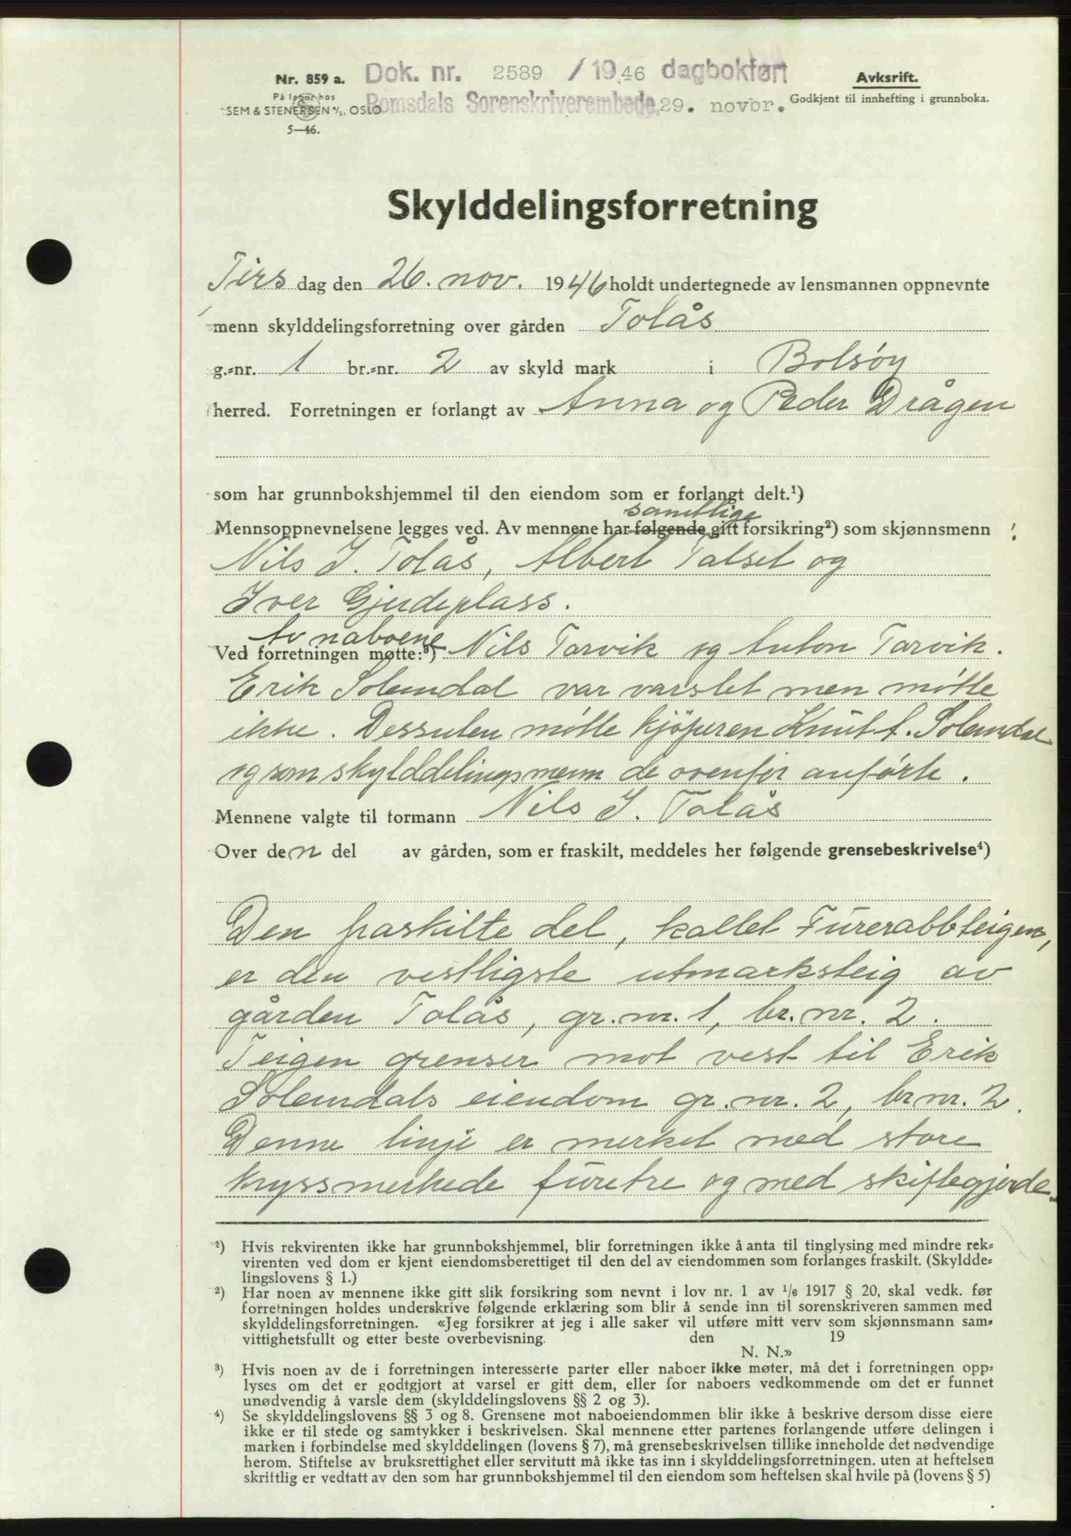 Nr. 859 a.
På lager hos
SEM & STENERSEN A/S. OSLO
5—46.
Dok. nr. 2589 /1946 dagbokført
Romsdals Sorenskriverembede 29. novbr.
Avkskrift.
Godkjent til innhefting i grunnboka.
Skylddelingsforretning
Tirsdag den 26. nov. 1946 holdt undertegnede av lensmannen oppnevnte
menn skylddelingsforretning over gården Tolås
g.-nr. 1 br.-nr. 2 av skyld mark i Bolsøy
herred. Forretningen er forlangt av Anna og Peder Drågen
som har grunnbokshjemmel til den eiendom som er forlangt delt.¹)
samtlige
Mennsoppnevnelsene legges ved. Av mennene har følgende gitt forsikring²) som skjønnsmenn :
Nils J. Tolås, Albert Talset og
Iver Gjerdeplass.
Av naboene
Ved forretningen møtte:³) Nils Tarvik og Anton Tarvik.
Erik Solemdal var varslet men møtte
ikke. Dessuten møtte kjøperen Knut A. Solemdal
og som skylddelingsmenn de ovenfor anførte.
Mennene valgte til formann Nils J. Tolås
Over den del av gården, som er fraskilt, meddeles her følgende grensebeskrivelse⁴)
Den fraskilte del, kallet Furerabbteigen,
er den vestligste utmarksteig av
gården Tolås, gr. nr. 1, br. nr. 2.
Teigen grenser mot vest til Erik
Solemdals eiendom gr. nr. 2, br nr. 2.
Denne linje er merket med store
kryssmerkede furetre og med skiftegjerde.
¹) Hvis rekvirenten ikke har grunnbokshjemmel, blir forretningen ikke å anta til tinglysing med mindre rek-
virenten ved dom er kjent eiendomsberettiget til den del av eiendommen som forlanges fraskilt. (Skyldde-
lingslovens § 1.)
²) Har noen av mennene ikke gitt slik forsikring som nevnt i lov nr. 1 av 1/6 1917 § 20, skal vedk. før
forretningen holdes underskrive følgende erklæring som blir å sende inn til sorenskriveren sammen med
skylddelingsforretningen. «Jeg forsikrer at jeg i alle saker vil utføre mitt verv som skjønnsmann sam-
vittighetsfullt og etter beste overbevisning. den 19
N. N.»
³) Hvis noen av de i forretningen interesserte parter eller naboer ikke møter, må det i forretningen opp-
lyses om det er godtgjort at varsel er gitt dem, eller for naboers vedkommende om det er funnet
unødvendig å varsle dem (skylddelingslovens §§ 2 og 3).
⁴) Se skylddelingslovens §§ 3 og 8. Grensene mot naboeiendommen blir ikke å beskrive dersom disse eiere
ikke er til stede og samtykker i beskrivelsen. Skal mennene etter partenes forlangende utføre delingen i
marken i forbindelse med skylddelingen (lovens § 7), må grensebeskrivelsen tillike inneholde det nødvendige
herom. Stiftelse av bruksrettighet eller servitutt må ikke tas inn i skylddelingsforretningen. uten at heftelsen
skriftlig er vedtatt av den som har grunnbokshjemmel til den eiendom som heftelsen skal hvile på (lovens § 5)